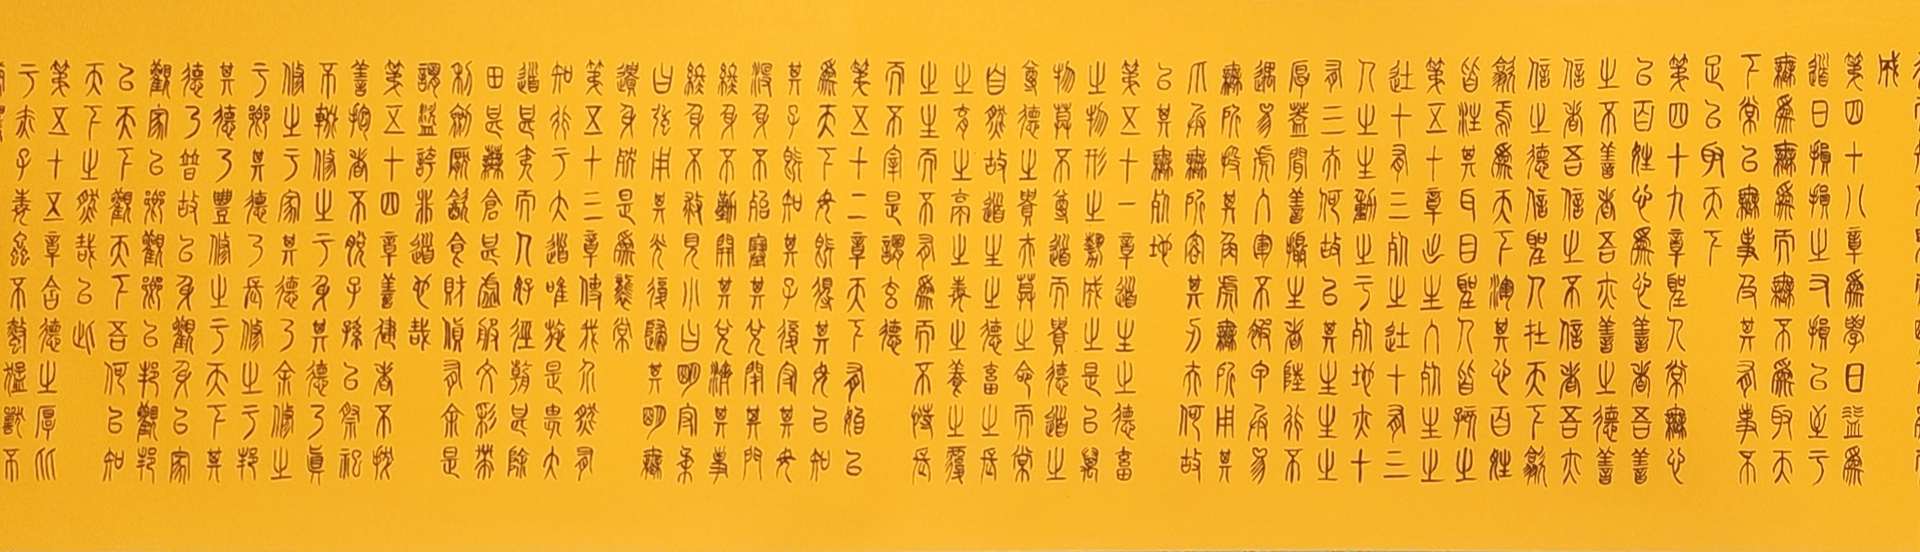 成
第四十八章為學日益為
道日損損之又損以至于
無為無為而無不為取天
下常以無事及其有事不
足以取天下
第四十九章聖人常無心
以百姓心為心善者吾善
之不善者吾亦善之德善
信者吾信之不信者吾亦
信之德信聖人在天下歙
歙焉為天下渾其心百姓
皆注其耳目聖人皆孩之
第五十章出生入死生之
徒十有三死之徒十有三
人之生動之于死地亦十
有三夫何故以其生生之
厚蓋聞善攝生者陸行不
遇兕虎入軍不被甲兵兕
無所投其角虎無所用其
爪兵無所容其刃夫何故
以其無死地
第五十一章道生之德畜
之物形之勢成之是以萬
物莫不尊道而貴德道之
尊德之貴夫莫之命而常
自然故道生之德畜之長
之育之亭之毒之養之覆
之生而不有為而不恃長
而不宰是謂玄德
第五十二章天下有始以
為天下母既得其母以知
其子既知其子復守其母
沒身不殆塞其兌閉其門
終身不勤開其兌濟其事
終身不救見小曰明守柔
曰強用其光復歸其明無
遺身殃是為襲常
第五十三章使我介然有
知行于大道唯施是畏大
道甚夷而人好徑朝甚除
田甚蕪倉甚虛服文彩帶
利劍厭飲食財貨有余是
謂盜誇非道也哉
第五十四章善建者不拔
善抱者不脫子孫以祭祀
不輟修之于身其德乃真
修之于家其德乃余修之
于鄉其德乃長修之于邦
其德乃豐修之于天下其
德乃普故以身觀身以家
觀家以鄉觀鄉以邦觀邦
以天下觀天下吾何以知
天下之然哉以此
第五十五章含德之厚比
于赤子毒蟲不螫猛獸不